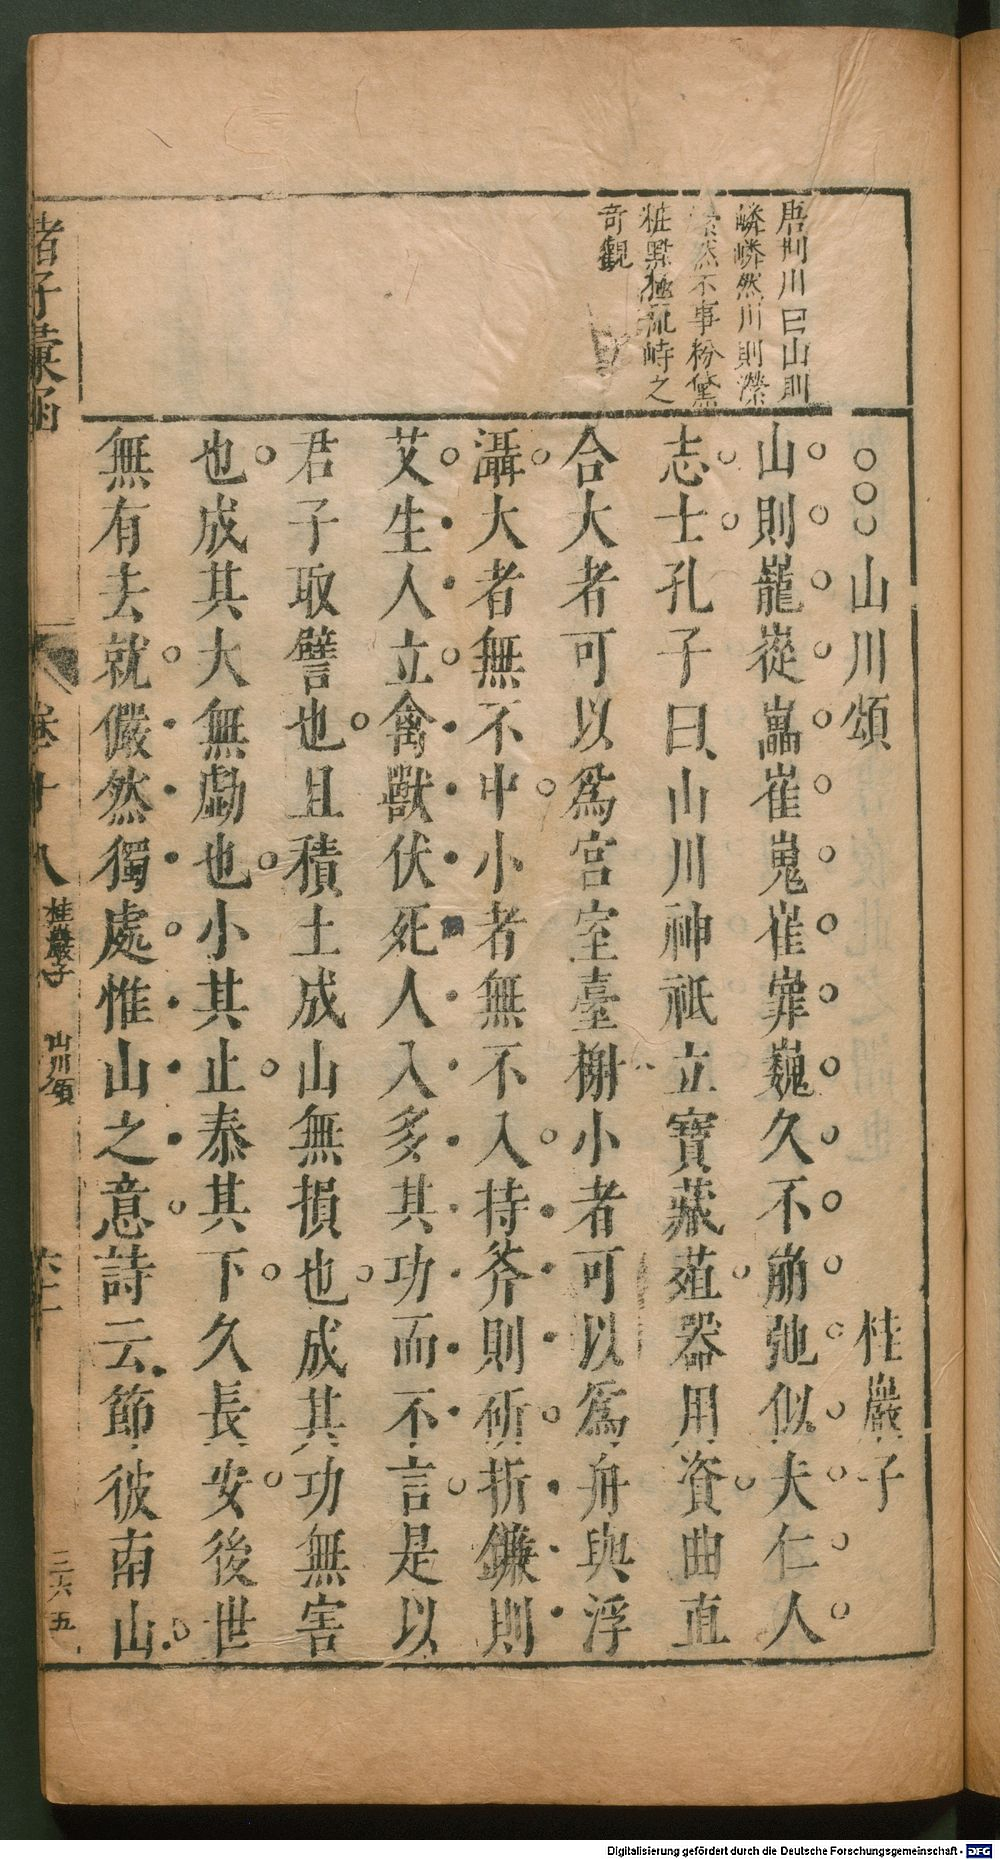 唐荆川曰山則
嶙嶙然川則瀠
瀠然不事粉黛
粧點極流峙之
奇觀
○○○山川頌 桂巖子
山則巃嵸嵓崔嵬嶊嶵巍久不崩弛似夫仁人
志士孔子曰山川神祇立寶藏葅器用資曲直
合大者可以爲宮室臺榭小者可以爲舟輿浮
灄大者無不中小者無不入持斧則斫折鐮則
艾生人立禽獸伏死人入多其功而不言是以
君子取譬也且積土成山無損也成其功無害
也成其大無虧也小其止泰其下久長安後世
無有去就儼然獨處惟山之意詩云節彼南山
諸子彙函
卷十八 桂巖子 山川頌 二六五
Digitalisierung gefördert durch die Deutsche Forschungsgemeinschaft - DFG